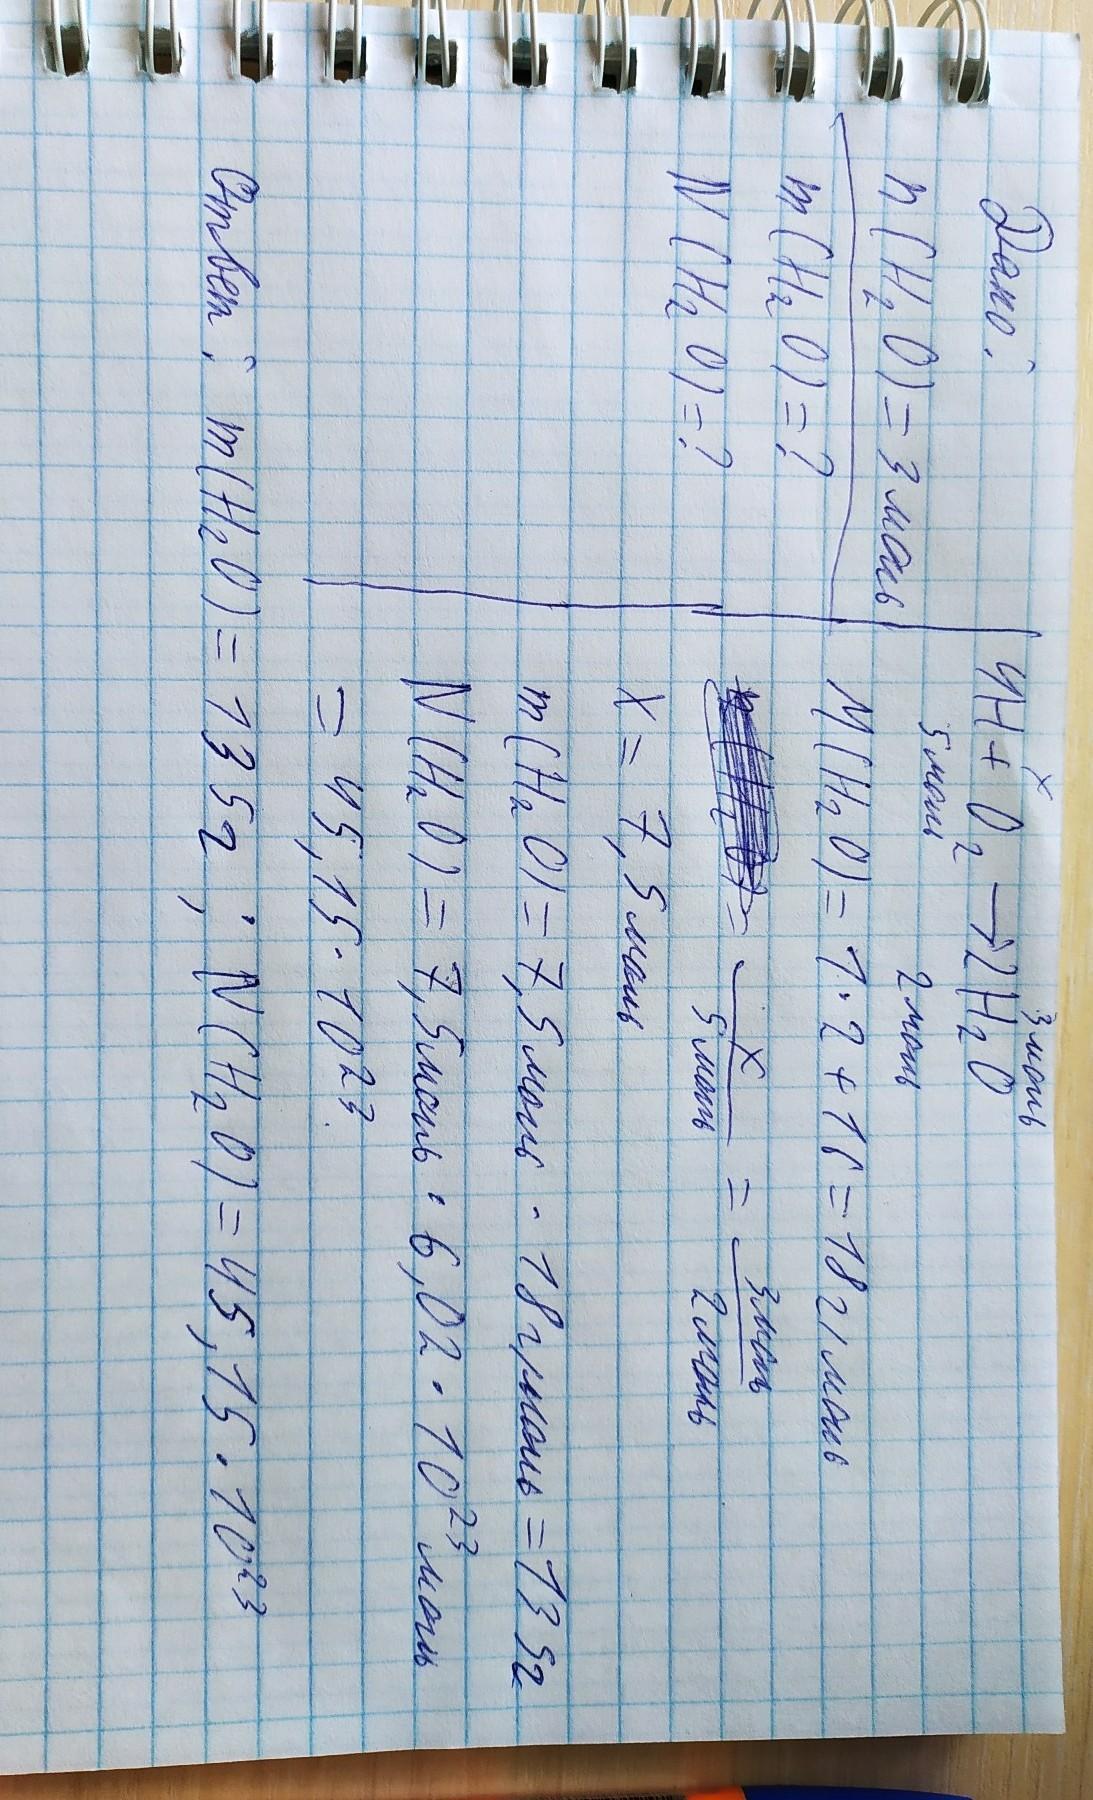 Дано:
n(H2O)=3 моль
m(H2O)=?
N(H2O)=?
x 3 моль
4H + O2 → 2H2O
5 моль 2 моль
M(H2O)=1·2+16=18 г/моль
= x/5 моль = 3 моль/2 моль
x = 7,5 моль
m(H2O)=7,5 моль · 18 г/моль = 135г
N(H2O)=7,5 моль · 6,02 · 10²³ моль
= 45,15 · 10²³.
Ответ: m(H2O)=135г ; N(H2O)=45,15·10²³